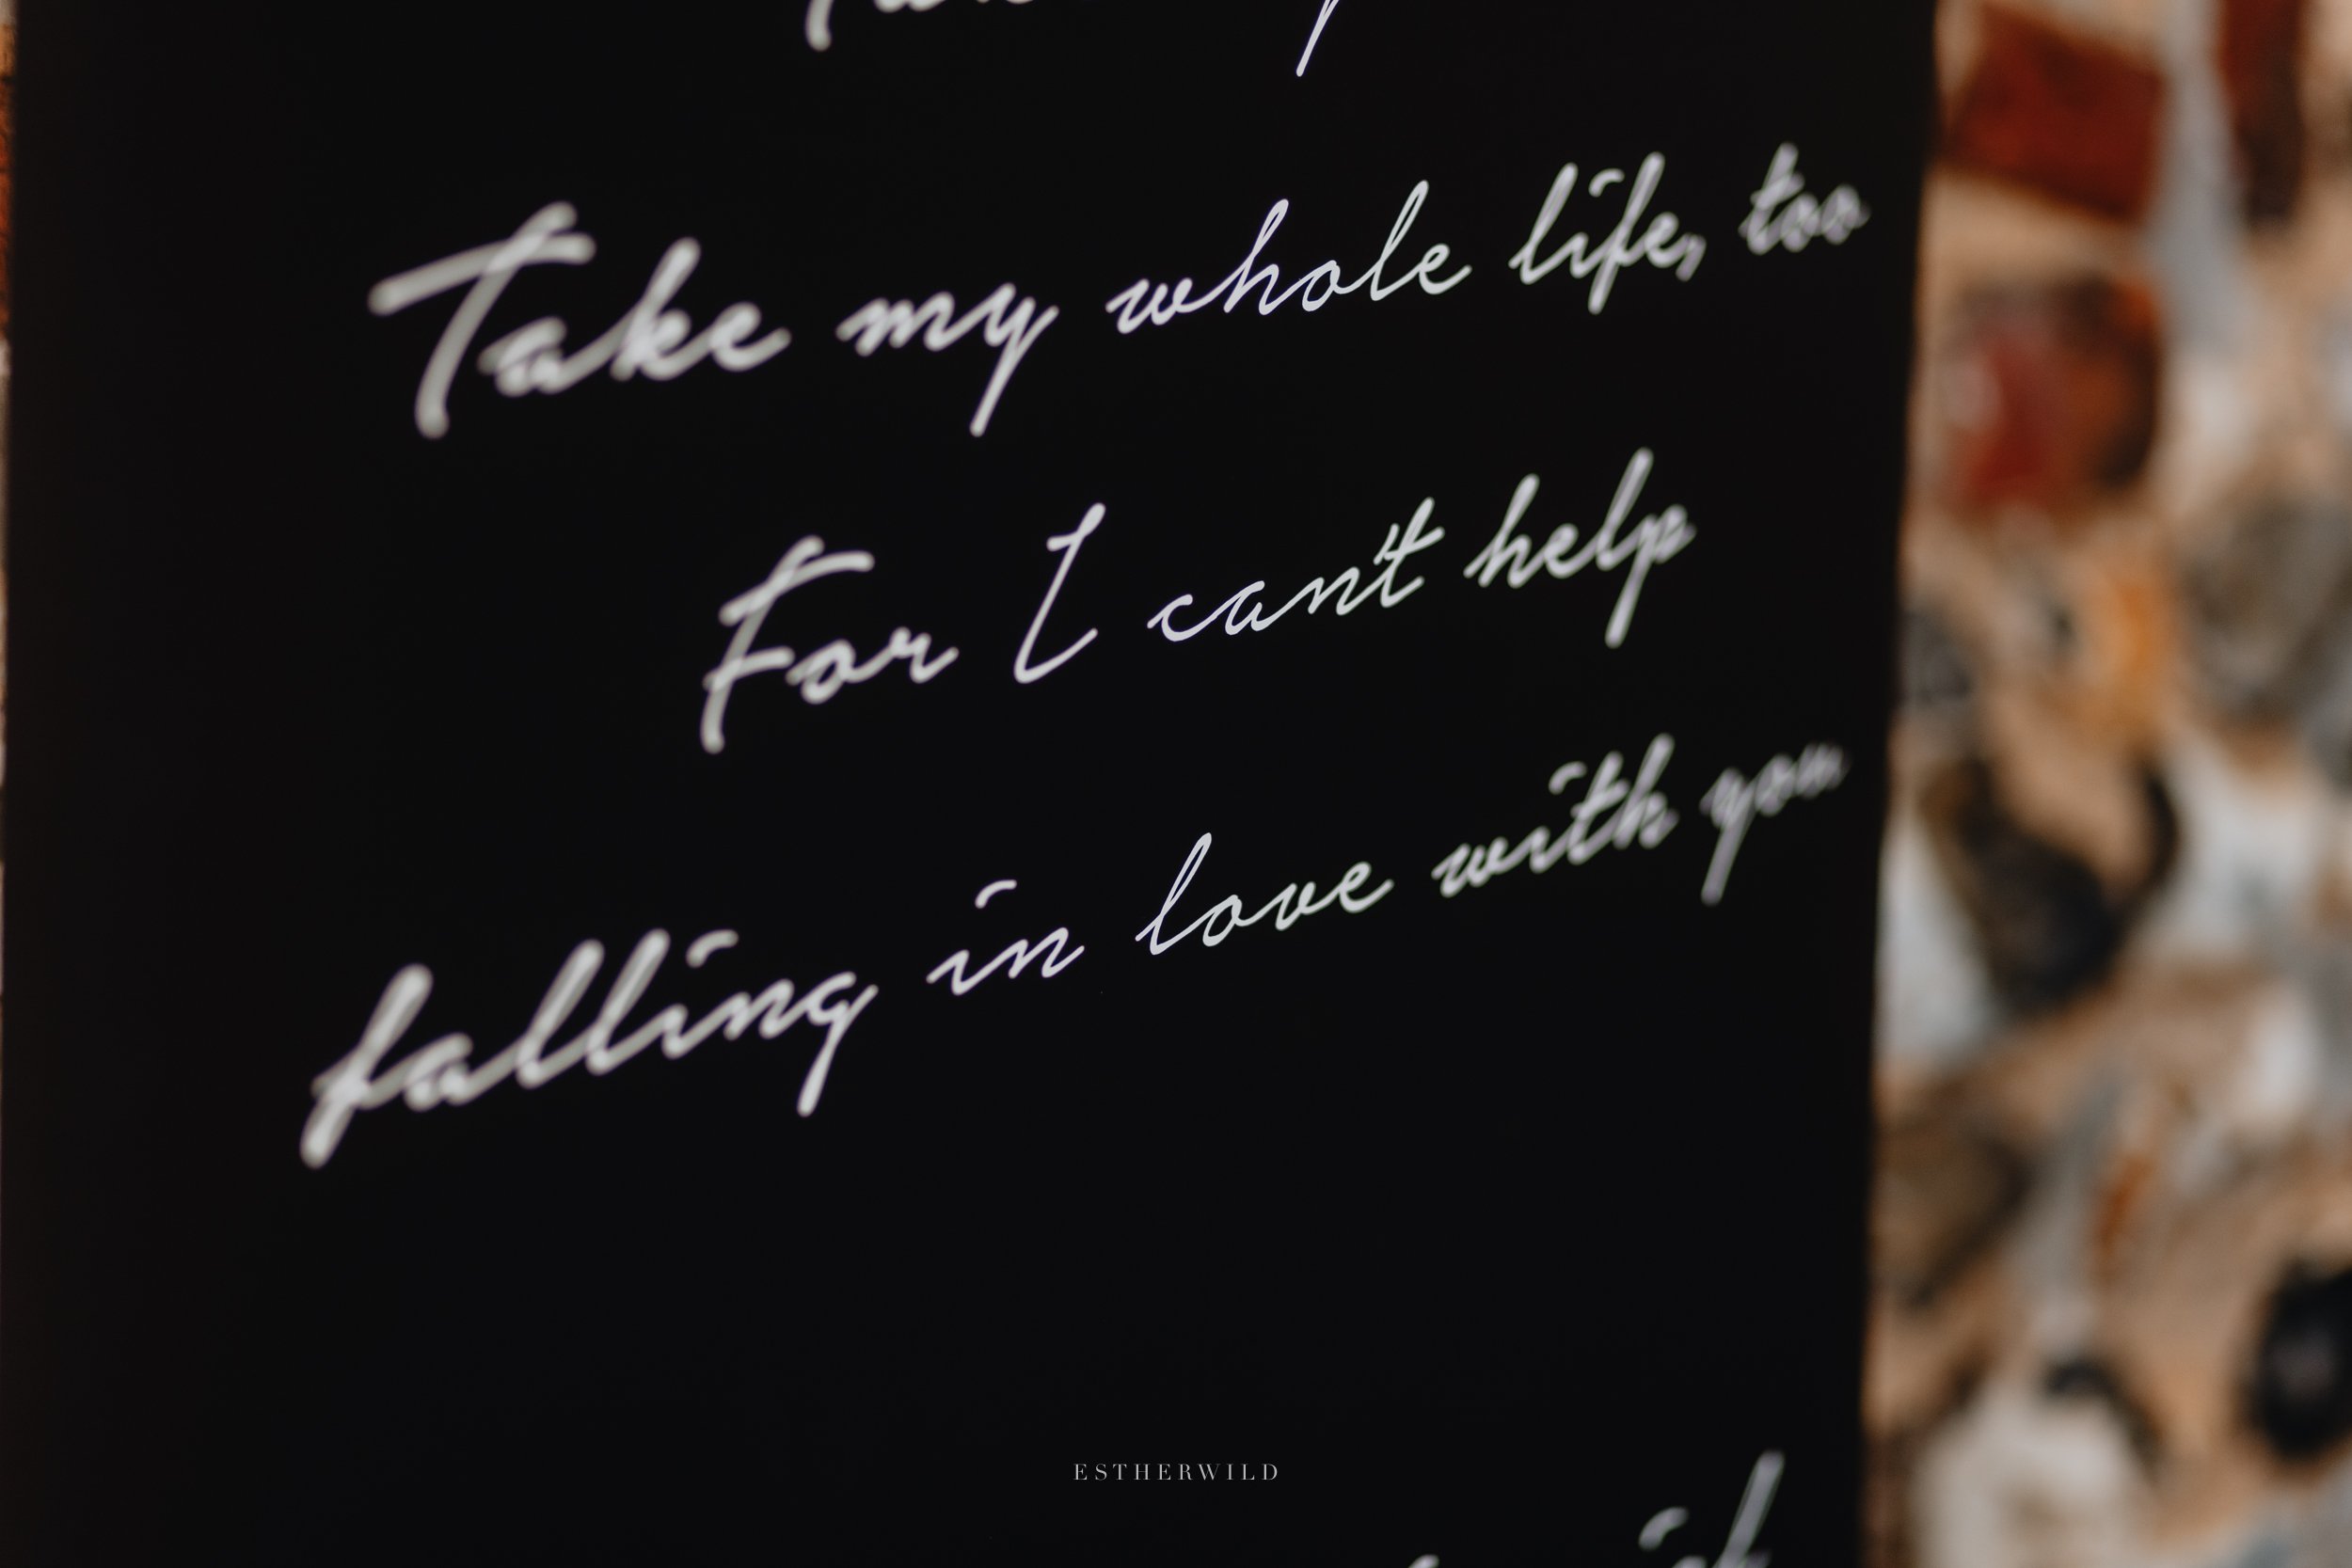 Take my whole life, too
For I can't help
falling in love with you
ESTHERWILD